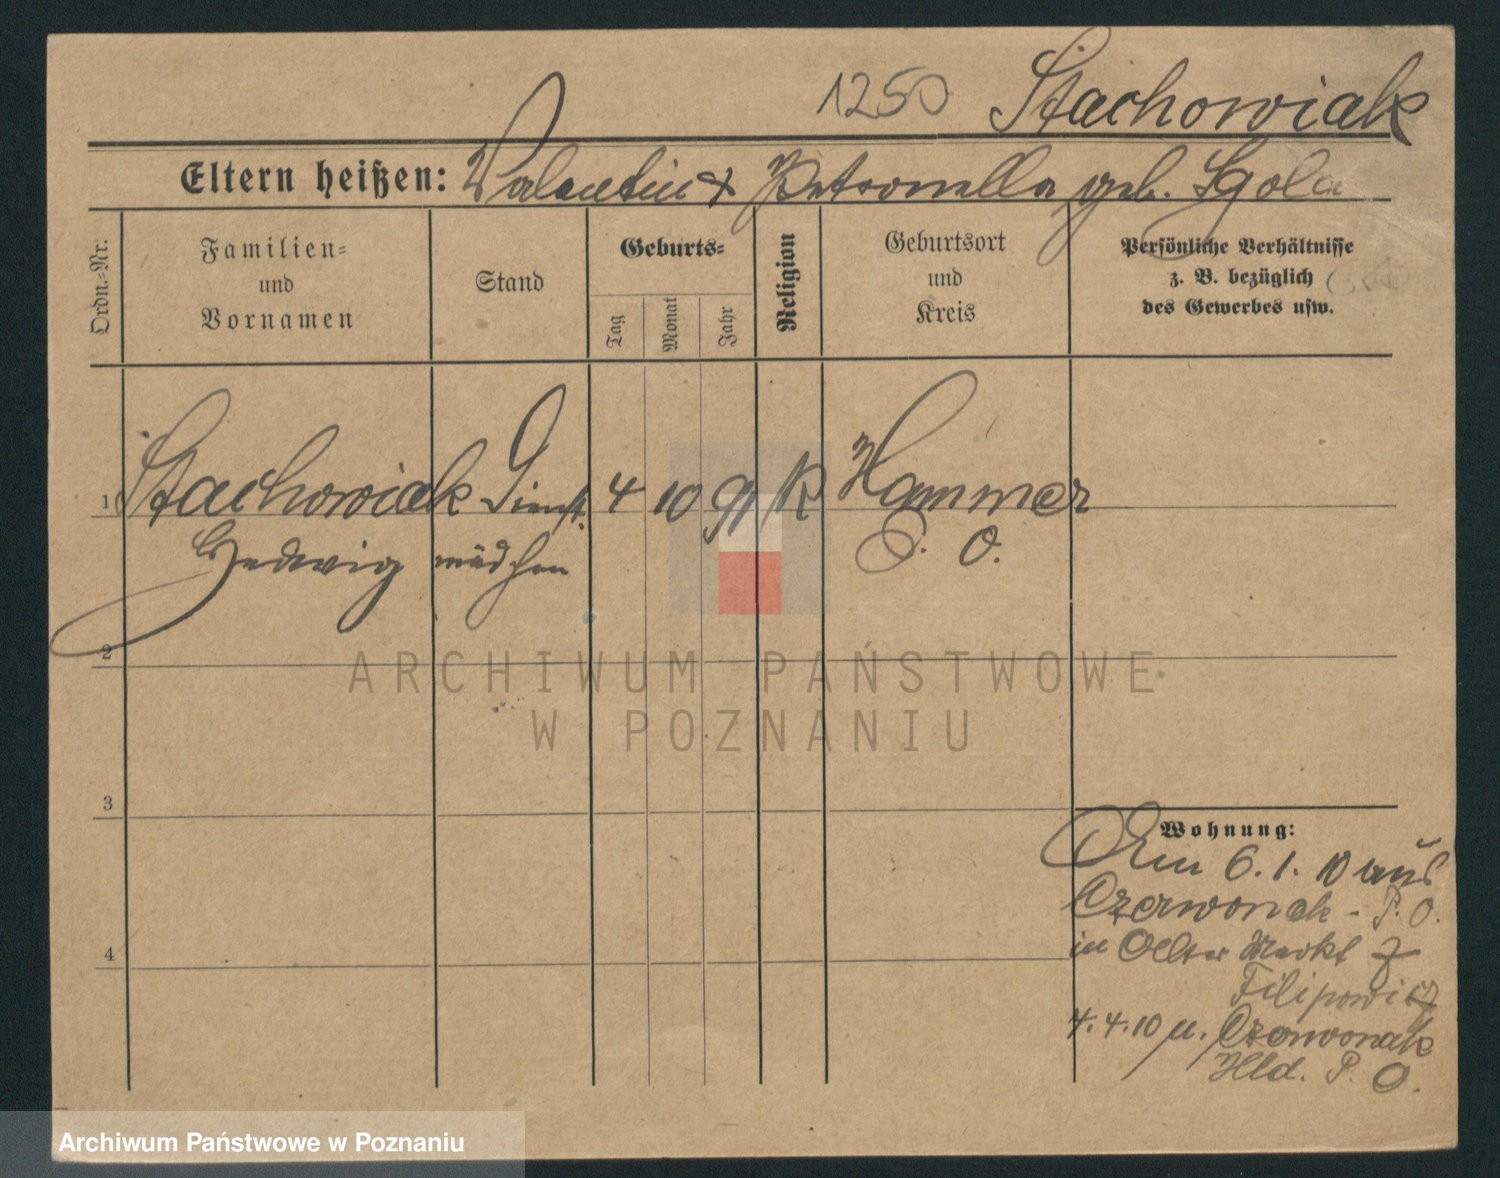 1250 Stachowiak
Eltern heißen: Valentin & Petronella geb. Gola
Ordn.-Nr.
Familien-
und
Vornamen
Stand
Geburts-
Tag
Monat
Jahr
Religion
Geburtsort
und
Kreis
Persönliche Verhältnisse
z. B. bezüglich
des Gewerbes usw.
1 Stachowiak Dienst. 4 10 91 K Hammer
Hedwig mädchen P. O.
2
3
4
Wohnung:
Am 6.1.10 aus
Czerwonak - P. O.
in Alter Markt
Filipowicz
4.4.10 n. Czerwonak
Hld. P. O.
ARCHIWUM PAŃSTWOWE
W POZNANIU
Archiwum Państwowe w Poznaniu